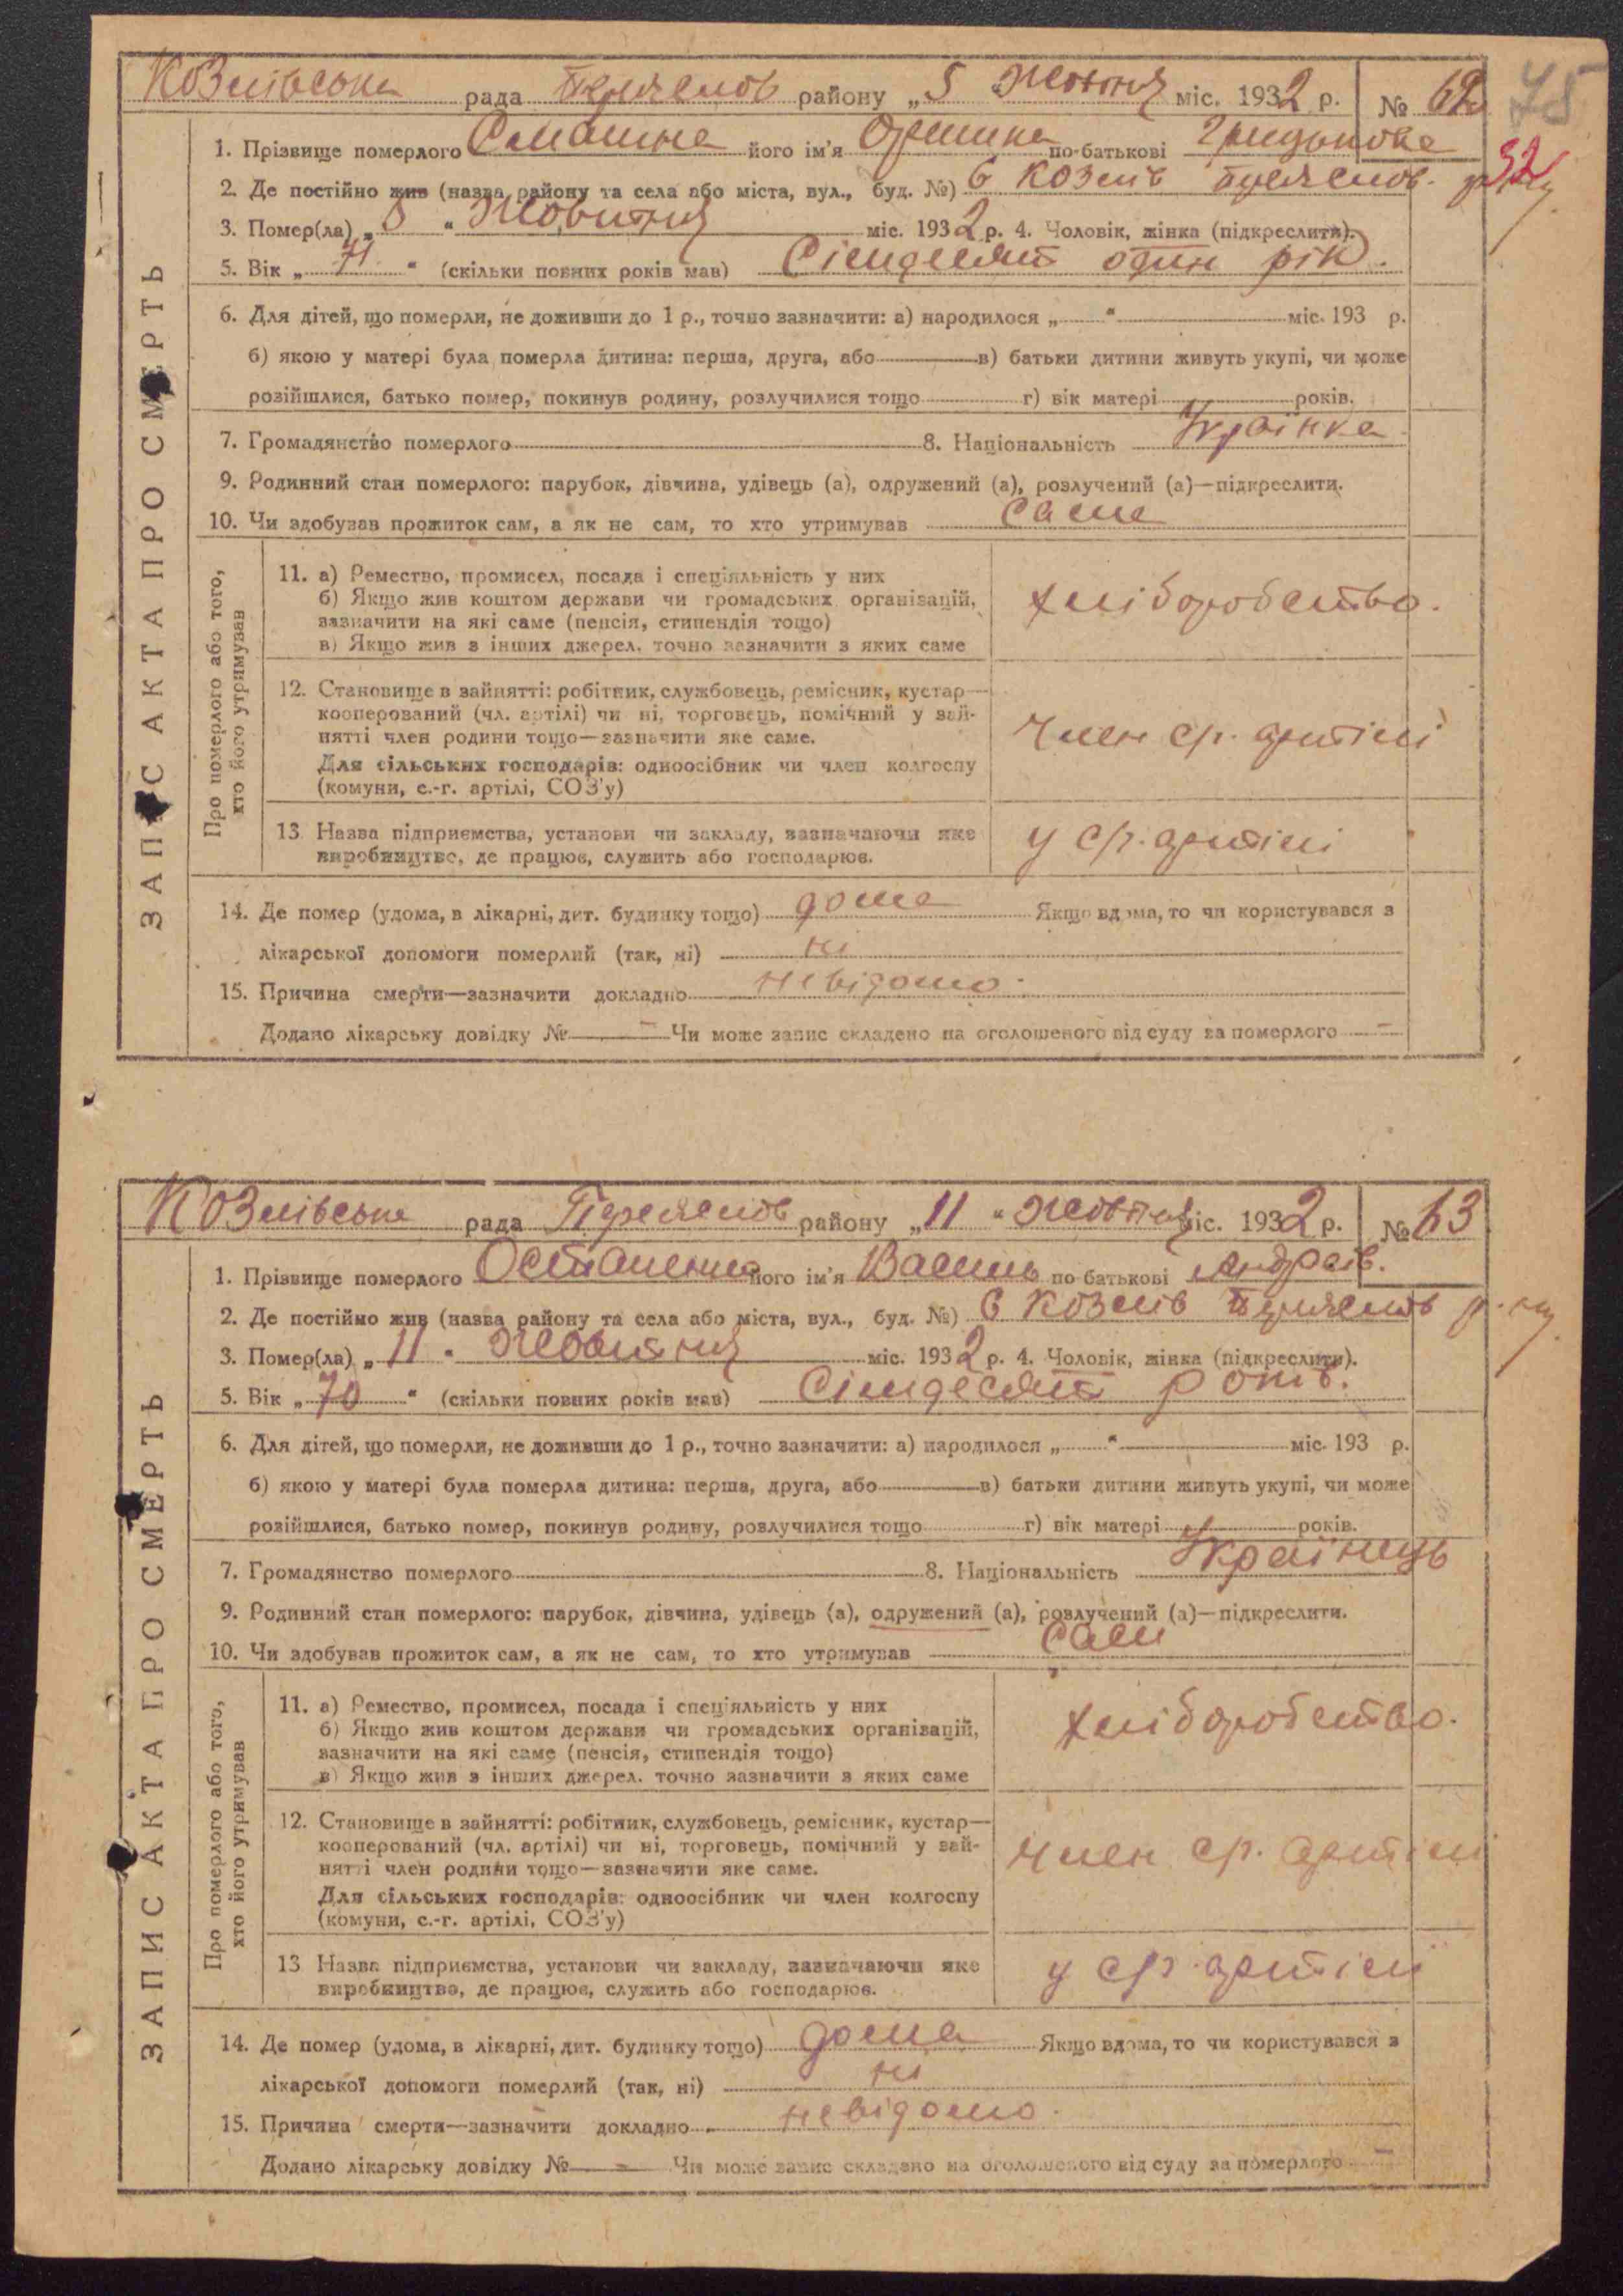 Козлівська рада Переяслов району „5 Жовтня міс. 1932 р. № 62
75
32
1. Прізвище померлого його ім'я Оришка по-батькові
2. Де постійно жив (назва району та села або міста, вул., буд. №) с Козлів Переяслов. р-ну
3. Помер(ла) „5 “ Жовтня міс. 1932 р. 4. Чоловік, жінка (підкреслити).
5. Вік „ 71 “ (скільки повних років мав) Сімдесят один рік.
6. Для дітей, що померли, не доживши до 1 р., точно зазначити: а) народилося „ “ міс. 193 р.
б) якою у матері була померла дитина: перша, друга, або в) батьки дитини живуть укупі, чи може
розійшлися, батько помер, покинув родину, розлучилися тощо г) вік матері років.
7. Громадянство померлого 8. Національність Українка
9. Родинний стан померлого: парубок, дівчина, удівець (а), одружений (а), розлучений (а)—підкреслити.
10. Чи здобував прожиток сам, а як не сам, то хто утримував сама
11. а) Ремество, промисел, посада і спеціяльність у них
б) Якщо жив коштом держави чи громадських організацій,
зазначити на які саме (пенсія, стипендія тощо)
в) Якщо жив з інших джерел, точно зазначити з яких саме
хліборобство.
12. Становище в зайнятті: робітник, службовець, ремісник, кустар—
кооперований (чл. артілі) чи ні, торговець, помічний у зай-
нятті член родини тощо—зазначити яке саме.
Для сільських господарів: одноосібник чи член колгоспу
(комуни, с.-г. артілі, СОЗ'у)
член с/г. артілі
13 Назва підприємства, установи чи закладу, зазначаючи яке
виробництво, де працює, служить або господарює.
у с/г. артілі
14. Де помер (удома, в лікарні, дит. будинку тощо) дома Якщо вдома, то чи користувався з
лікарської допомоги померлий (так, ні) ні
15. Причина смерти—зазначити докладно невідомо.
Додано лікарську довідку № – Чи може запис складено на оголошеного від суду за померлого –
ЗАПИС АКТА ПРО СМЕРТЬ
Про померлого або того,
хто його утримував
Козлівська рада Переяслов району „11 “ Жовтня міс. 1932 р. № 63
1. Прізвище померлого його ім'я Василь по-батькові Андріїв.
2. Де постійно жив (назва району та села або міста, вул., буд. №) с Козлів Переяслов р-ну
3. Помер(ла) „ 11 “ Жовтня міс. 1932 р. 4. Чоловік, жінка (підкреслити).
5. Вік „ 70 “ (скільки повних років мав) Сімдесят років.
6. Для дітей, що померли, не доживши до 1 р., точно зазначити: а) народилося „ “ міс. 193 р.
б) якою у матері була померла дитина: перша, друга, або в) батьки дитини живуть укупі, чи може
розійшлися, батько помер, покинув родину, розлучилися тощо г) вік матері років.
7. Громадянство померлого 8. Національність Українець
9. Родинний стан померлого: парубок, дівчина, удівець (а), одружений (а), розлучений (а)—підкреслити.
10. Чи здобував прожиток сам, а як не сам, то хто утримував сам
11. а) Ремество, промисел, посада і спеціяльність у них
б) Якщо жив коштом держави чи громадських організацій,
зазначити на які саме (пенсія, стипендія тощо)
в) Якщо жив з інших джерел, точно зазначити з яких саме
хліборобство.
12. Становище в зайнятті: робітник, службовець, ремісник, кустар—
кооперований (чл. артілі) чи ні, торговець, помічний у зай-
нятті член родини тощо—зазначити яке саме.
Для сільських господарів: одноосібник чи член колгоспу
(комуни, с.-г. артілі, СОЗ'у)
член с/г. артілі
13 Назва підприємства, установи чи закладу, зазначаючи яке
виробництво, де працює, служить або господарює.
у с/г артілі
14. Де помер (удома, в лікарні, дит. будинку тощо) дома Якщо вдома, то чи користувався з
лікарської допомоги померлий (так, ні) ні
15. Причина смерти—зазначити докладно невідомо.
Додано лікарську довідку № – Чи може запис складено на оголошеного від суду за померлого –
ЗАПИС АКТА ПРО СМЕРТЬ
Про померлого або того,
хто його утримував